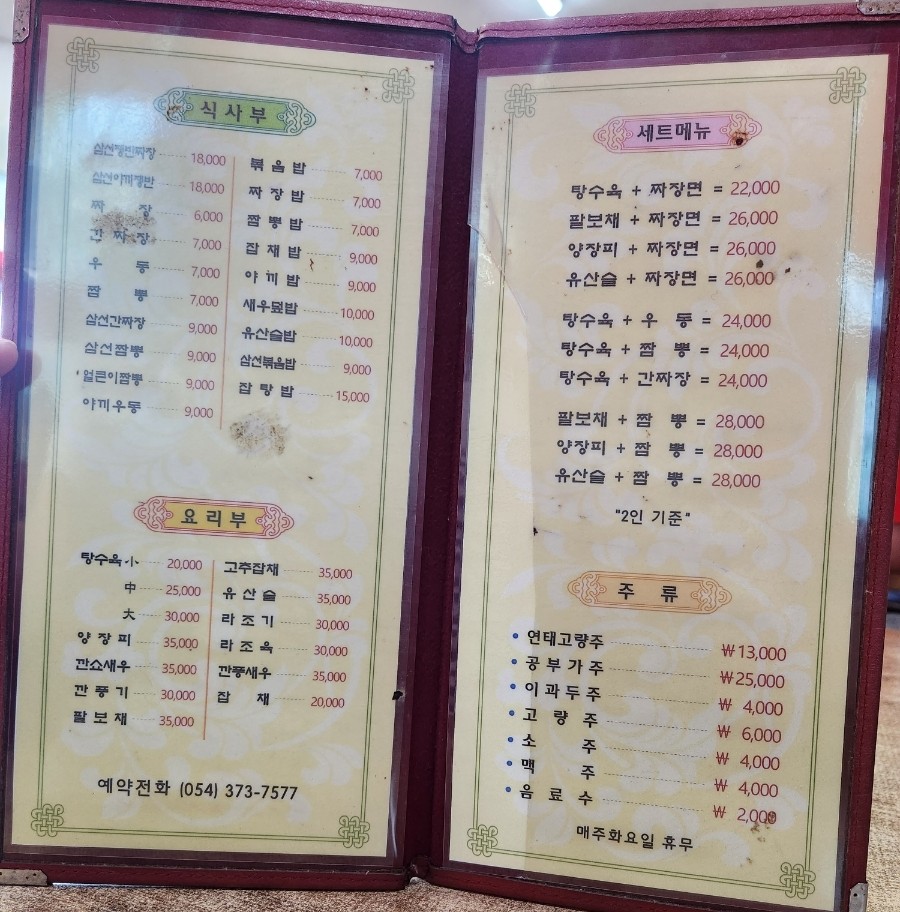 식사부
삼선쟁반짜장 18,000
삼선야끼쟁반 18,000
짜 장 6,000
간 짜 장 7,000
우 동 7,000
짬 뽕 7,000
삼선간짜장 9,000
삼선짬뽕 9,000
얼큰이짬뽕 9,000
야끼우동 9,000
볶 음 밥 7,000
짜 장 밥 7,000
짬 뽕 밥 7,000
잡 채 밥 9,000
야 끼 밥 9,000
새우덮밥 10,000
유산슬밥 10,000
삼선볶음밥 9,000
잡 탕 밥 15,000
요리부
탕수육 小 20,000
中 25,000
大 30,000
양 장 피 35,000
깐쇼새우 35,000
깐 풍 기 30,000
팔 보 채 35,000
고추잡채 35,000
유 산 슬 35,000
라 조 기 30,000
라 조 육 30,000
깐풍새우 35,000
잡 채 20,000
예약전화 (054) 373-7577
세트메뉴
탕수육 + 짜장면 = 22,000
팔보채 + 짜장면 = 26,000
양장피 + 짜장면 = 26,000
유산슬 + 짜장면 = 26,000
탕수육 + 우 동 = 24,000
탕수육 + 짬 뽕 = 24,000
탕수육 + 간짜장 = 24,000
팔보채 + 짬 뽕 = 28,000
양장피 + 짬 뽕 = 28,000
유산슬 + 짬 뽕 = 28,000
"2인 기준"
주 류
• 연태고량주 ₩13,000
• 공 부 가 주 ₩25,000
• 이 과 두 주 ₩ 4,000
• 고 량 주 ₩ 6,000
• 소 주 ₩ 4,000
• 맥 주 ₩ 4,000
• 음 료 수 ₩ 2,000
매주화요일 휴무